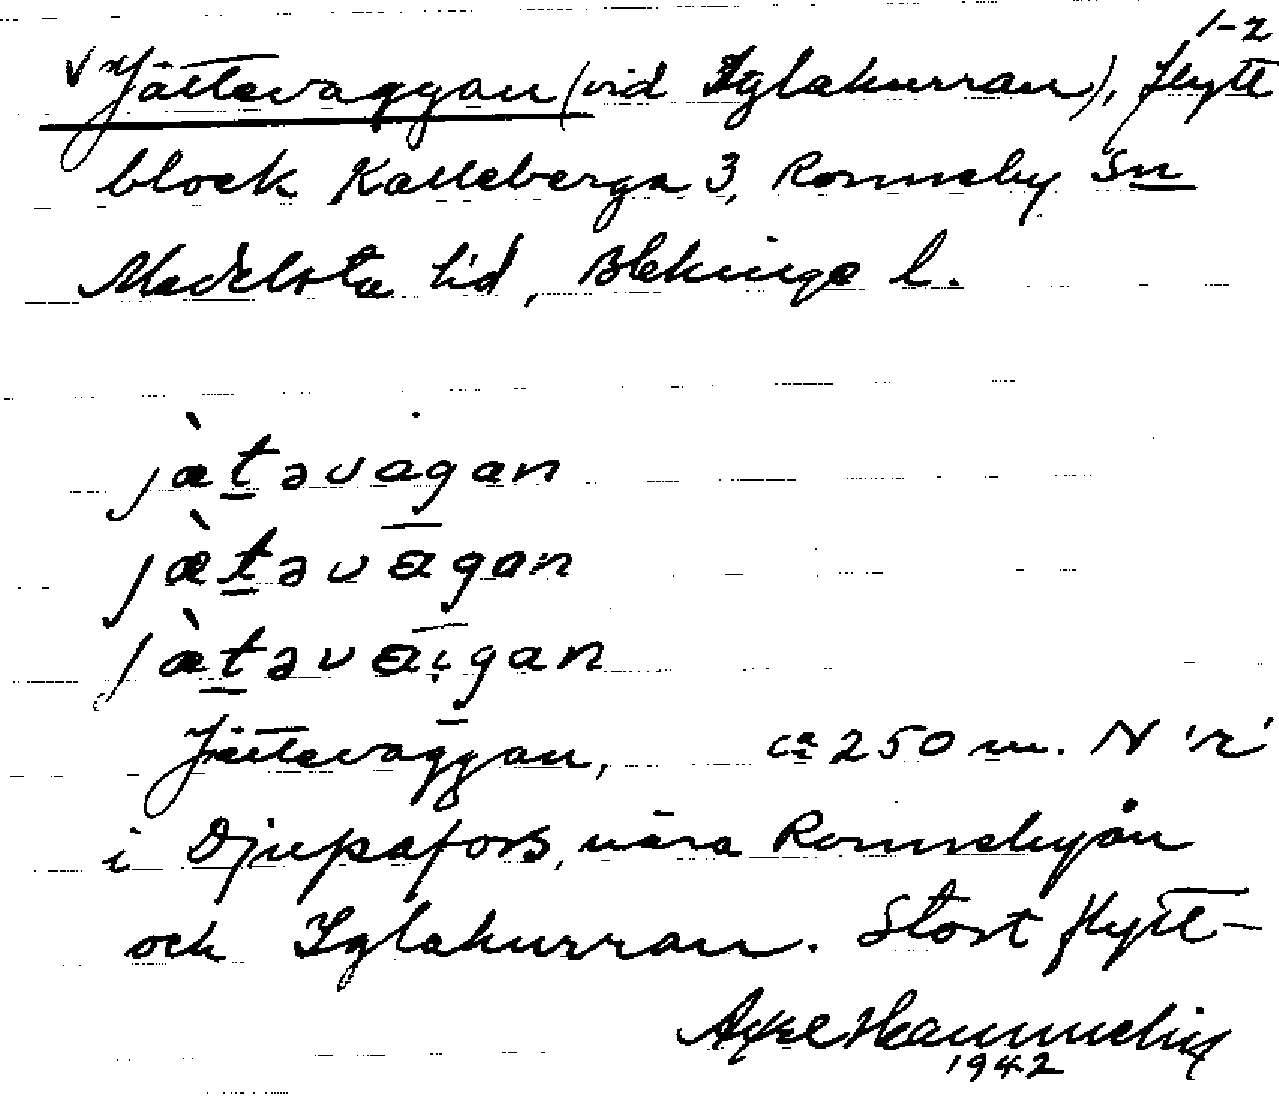 1-2
√ Jättevaggan (vid Iglakurran), flytt
block Kalleberga 3, Ronneby Sn
Medelsta hd, Blekinge l.
jæ̀t̲əvagan
jæ̀t̲əvāgan
jæ̀t̲əvāi̯gan
Jättevaggan, ca 250 m. N 'r'
i Djupafors, nära Ronnebyån
och Iglakurran. Stort flytt-
Axel Hammelin
1942